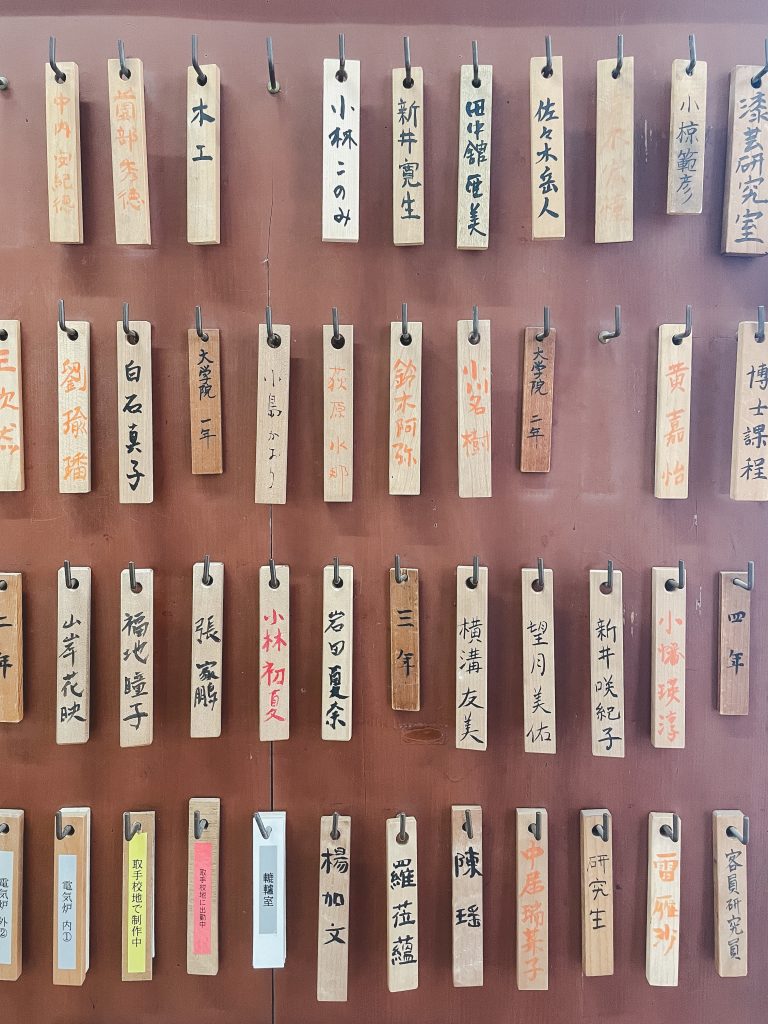 漆芸研究室
小椋範彦
佐々木岳人
田中舘亜美
新井寛生
小林このみ
木工
薗部秀徳
中内安紀徳
博士課程
黄嘉怡
大学院 二年
小川名樹
鈴木阿弥
荻原水
小島かおり
大学院 一年
白石真子
劉瑜璠
三次
四年
小幡瑛淳
新井咲紀子
望月美佑
横溝友美
三年
岩田夏奈
小林初夏
張家鵬
福地瞳子
山岸花映
二年
客員研究員
雷雁沙
研究生
中居瑞菜子
陳瑶
羅莅蘊
楊加文
轆轤室
取手校地に出勤中
取手校地で制作中
電気炉 内①
電気炉 外②